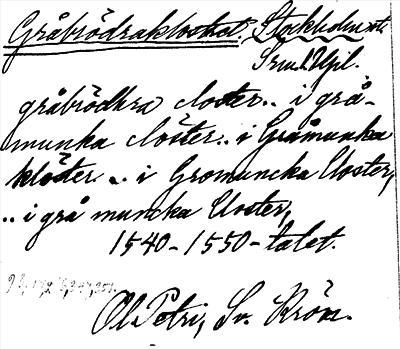 Gråbrödraklostret. Stockholm st.
Srml. Upl.
gråbrödhra closter.. i grå-
munka clöster.. i Gråmunka
klöster... i Gromuncka Closter,
.. i grå muncka Closter,
1540-1550-talet.
Ol. Petri, Sv. Krön.